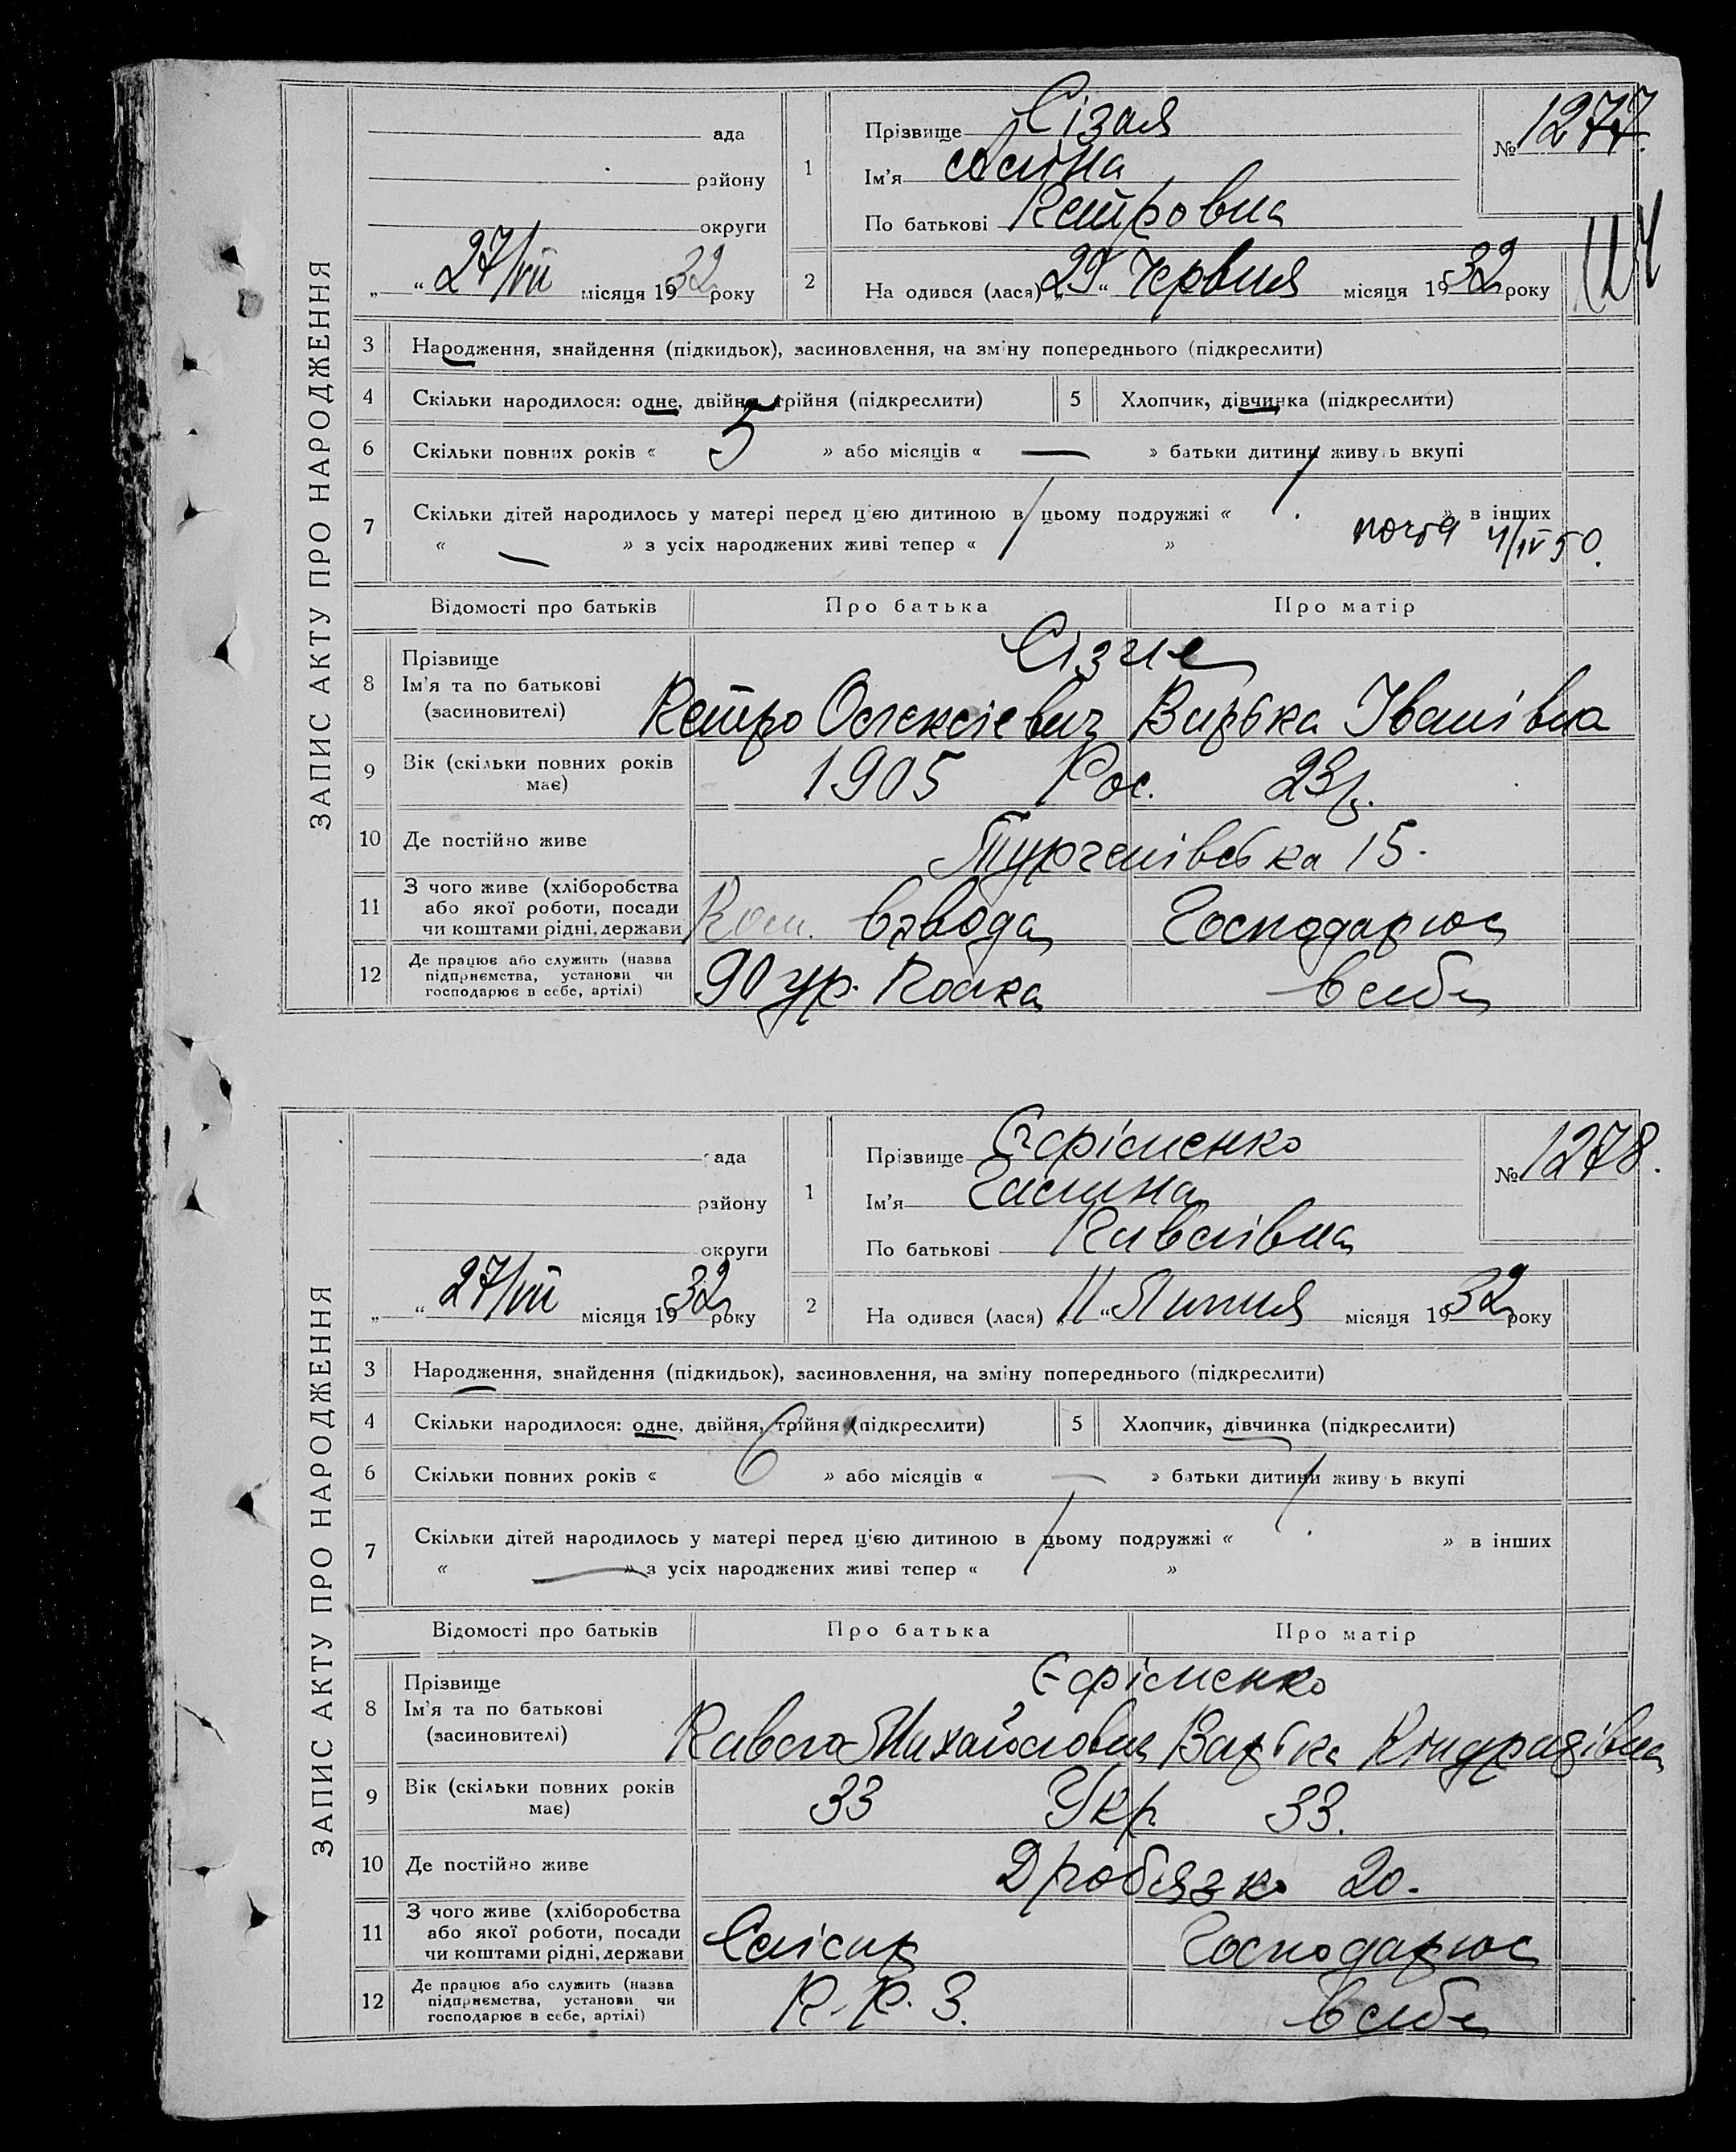 ЗАПИС АКТУ ПРО НАРОДЖЕННЯ
ада
району
округи
„ “ 27/VII місяця 1932 року
1 Прізвище Сізая
Ім'я
По батькові Петровна
№ 1277.
2 На одився (лася) „29“ Червня місяця 1932 року
3 Народження, знайдення (підкидьок), засиновлення, на зміну попереднього (підкреслити)
4 Скільки народилося: одне, двійня, трійня (підкреслити) 5 Хлопчик, дівчинка (підкреслити)
6 Скільки повних років « 5 » або місяців « — » батьки дитини живуть вкупі
7 Скільки дітей народилось у матері перед цією дитиною в цьому подружжі « 1 » в інших
« — » з усіх народжених живі тепер « 1 »
почта 4/IV 50.
Відомості про батьків Про батька Про матір
8 Прізвище
Ім'я та по батькові
(засиновителі)
Петро Олексієвич Варька Іванівна
9 Вік (скільки повних років має) 1905 Рос. 23 р.
10 Де постійно живе Тургенівська 15.
11 З чого живе (хліборобства або якої роботи, посади чи коштами рідні, держави Ком. взвода Господарює
12 Де працює або служить (назва підприємства, установи чи господарює в себе, артілі) 90 ур. Полка в себе
ЗАПИС АКТУ ПРО НАРОДЖЕННЯ
ада
району
округи
„ “ 27/VII місяця 1932 року
1 Прізвище Єфіменко
Ім'я Галина
По батькові Павлівна
№ 1278.
2 На одився (лася) „11“ Липня місяця 1932 року
3 Народження, знайдення (підкидьок), засиновлення, на зміну попереднього (підкреслити)
4 Скільки народилося: одне, двійня, трійня (підкреслити) 5 Хлопчик, дівчинка (підкреслити)
6 Скільки повних років « 6 » або місяців « — » батьки дитини живуть вкупі
7 Скільки дітей народилось у матері перед цією дитиною в цьому подружжі « 1 » в інших
« — » з усіх народжених живі тепер « 1 »
Відомості про батьків Про батька Про матір
8 Прізвище Єфіменко
Ім'я та по батькові
(засиновителі)
Павло Михайлович Варька Кіндратівна
9 Вік (скільки повних років має) 33 Укр. 33.
10 Де постійно живе Дробязко 20.
11 З чого живе (хліборобства або якої роботи, посади чи коштами рідні, держави Слісар Господарює
12 Де працює або служить (назва підприємства, установи чи господарює в себе, артілі) П. Р. З. в себе